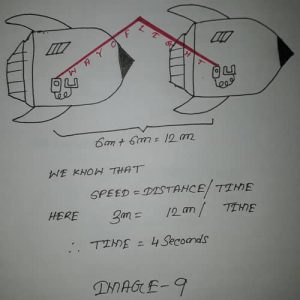 WAY OF LIGHT
6m + 6m = 12m
WE KNOW THAT
SPEED = DISTANCE / TIME
HERE 3m = 12m / TIME
∴ TIME = 4 Seconds
IMAGE-9